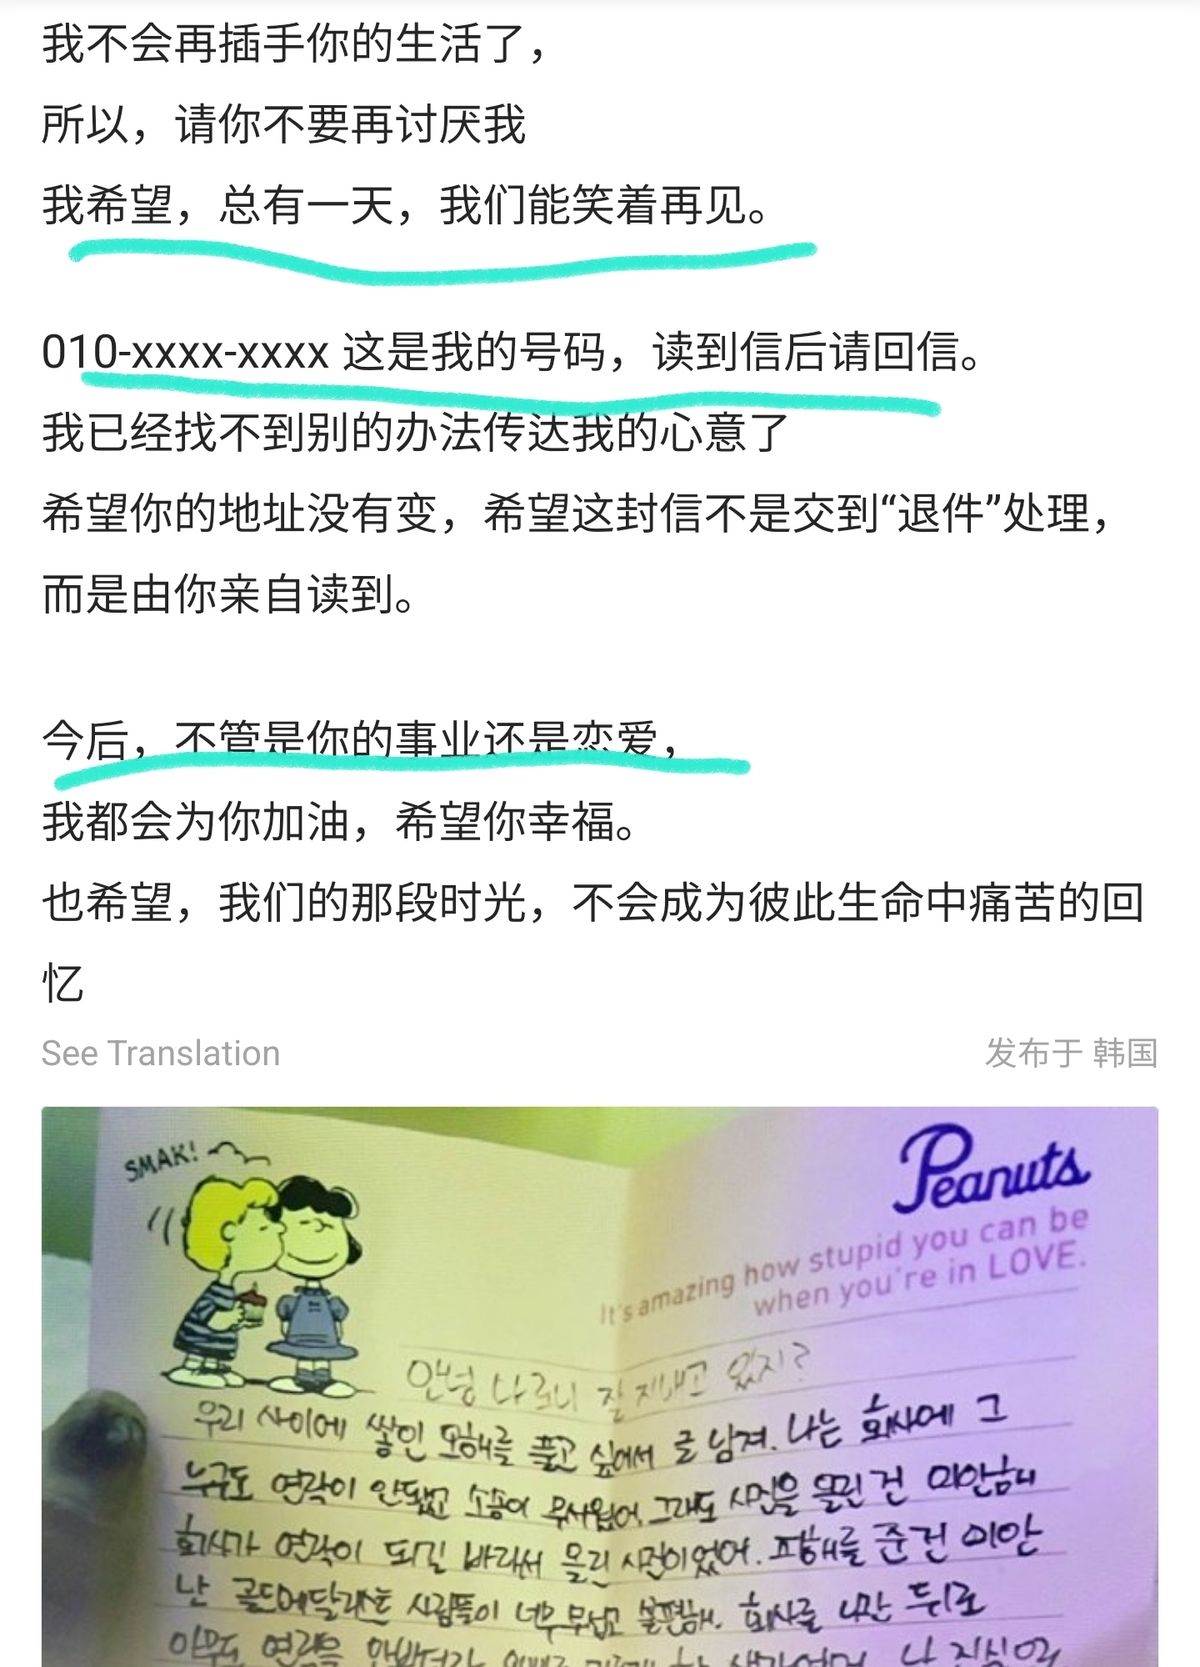 我不会再插手你的生活了，
所以，请你不要再讨厌我
我希望，总有一天，我们能笑着再见。
010-xxxx-xxxx 这是我的号码，读到信后请回信。
我已经找不到别的办法传达我的心意了
希望你的地址没有变，希望这封信不是交到“退件”处理，
而是由你亲自读到。
今后，不管是你的事业还是恋爱，
我都会为你加油，希望你幸福。
也希望，我们的那段时光，不会成为彼此生命中痛苦的回
忆
See Translation
发布于 韩国
SMAK!
Peanuts
It's amazing how stupid you can be
when you're in LOVE.
안녕 나 잘 지내고 있지?
우리 사이에 쌓인 오해를 풀고 싶어서 글 남겨. 나는 회사에 그
누구도 연락이 안됐고 소송이 무서웠어. 그래도 사진을 올린 건 미안해
회사가 연락이 되길 바래서 올린 사진이었어. 피해를 준 건 미안
난 골드메달리스트 사람들이 너무 무섭고 불편해. 회사를 나간 뒤로
아무도 연락을